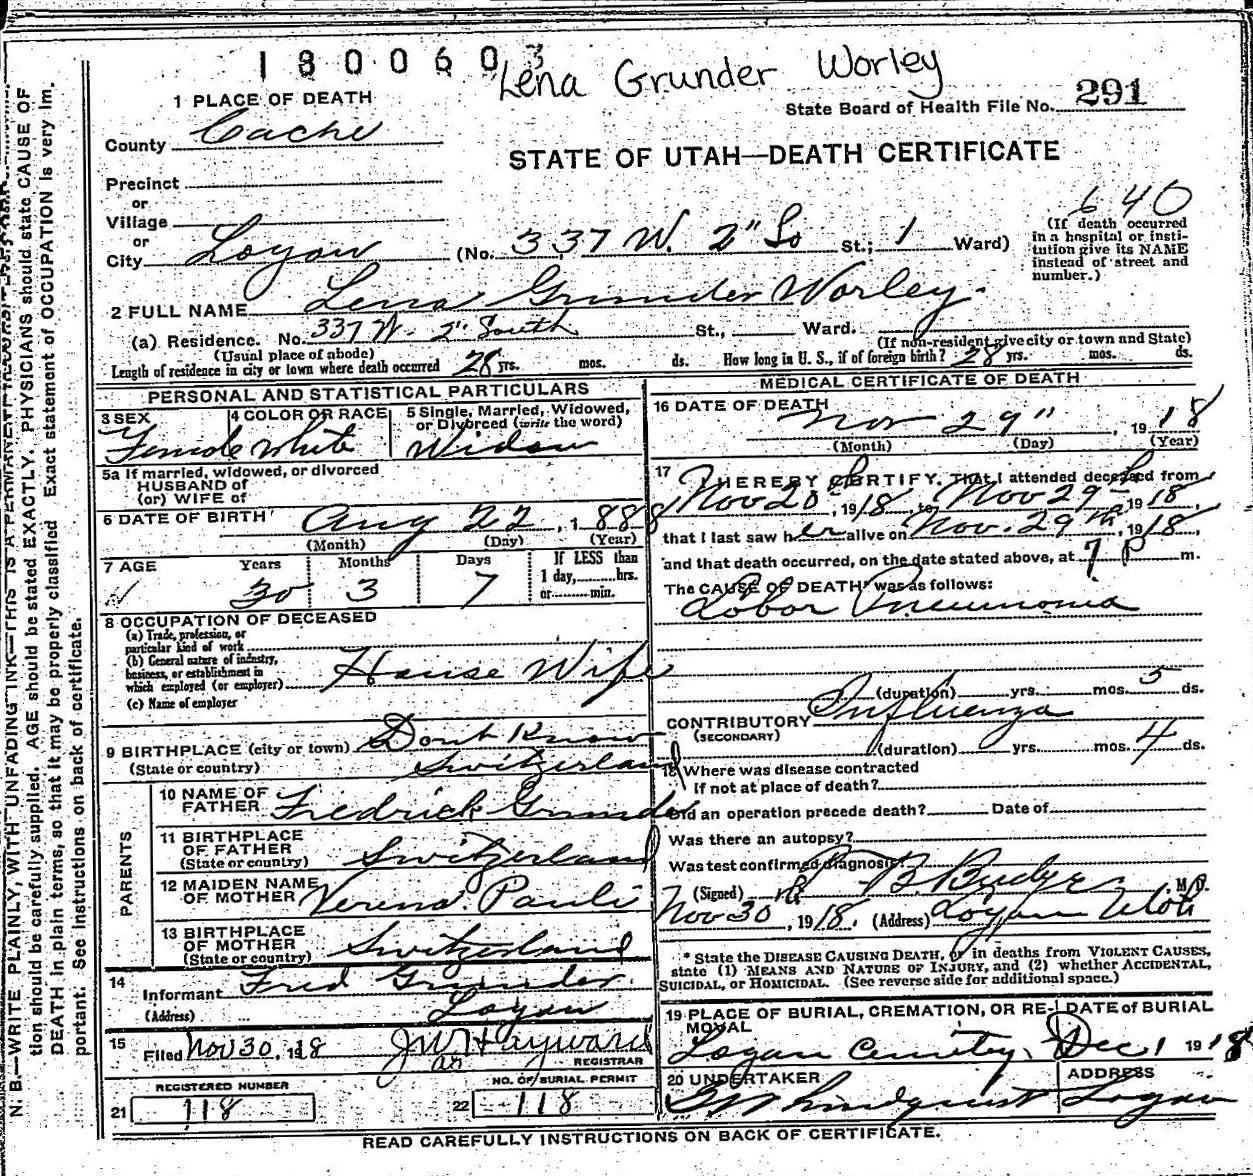 1300603
Lena Grunder Worley
State Board of Health File No. 291
1 PLACE OF DEATH
County Cache
STATE OF UTAH—DEATH CERTIFICATE
Precinct
or
Village
or
City Logan (No. 337 W. 2" So St.; 1 Ward)
640
(If death occurred
in a hospital or insti-
tution give its NAME
instead of street and
number.)
2 FULL NAME Lena Grunder Worley.
(a) Residence. No. 337 W. 2" South St., Ward.
(Usual place of abode)
(If non-resident give city or town and State)
Length of residence in city or town where death occurred 28 yrs. mos. ds. How long in U. S., if of foreign birth? 28 yrs. mos. ds.
PERSONAL AND STATISTICAL PARTICULARS
3 SEX Female
4 COLOR OR RACE White
5 Single, Married, Widowed,
or Divorced (write the word)
Widow
5a If married, widowed, or divorced
HUSBAND of
(or) WIFE of
6 DATE OF BIRTH Aug 22, 1888
(Month) (Day) (Year)
7 AGE Years Months Days
30 3 7
If LESS than
1 day, hrs.
or min.
8 OCCUPATION OF DECEASED
(a) Trade, profession, or
particular kind of work
(b) General nature of industry,
business, or establishment in
which employed (or employer)
House Wife
(c) Name of employer
9 BIRTHPLACE (city or town) Dont Know
(State or country) Switzerland
PARENTS
10 NAME OF
FATHER Fredrick Grunder
11 BIRTHPLACE
OF FATHER
(State or country) Switzerland
12 MAIDEN NAME
OF MOTHER Verena Pauli
13 BIRTHPLACE
OF MOTHER
(State or country) Switzerland
14
Informant Fred Grunder.
(Address) Logan
15
Filed Nov 30, 1918 J W Hayward
REGISTRAR
REGISTERED NUMBER
21 118
NO. OF BURIAL PERMIT
22 118
MEDICAL CERTIFICATE OF DEATH
16 DATE OF DEATH
Nov 29", 1918
(Month) (Day) (Year)
17 I HEREBY CERTIFY, That I attended deceased from
Nov 20, 1918, to Nov 29, 1918,
that I last saw her alive on Nov. 29th, 1918,
and that death occurred, on the date stated above, at 7 P m.
The CAUSE OF DEATH* was as follows:
Lobar Pneumonia
(duration) yrs. mos. 5 ds.
CONTRIBUTORY Influenza
(SECONDARY)
(duration) yrs. mos. 4 ds.
18 Where was disease contracted
If not at place of death?
Did an operation precede death? Date of
Was there an autopsy?
Was test confirmed diagnosis
(Signed) B. Budge M. D.
Nov 30, 1918. (Address) Logan Utah
* State the DISEASE CAUSING DEATH, or in deaths from VIOLENT CAUSES,
state (1) MEANS AND NATURE OF INJURY, and (2) whether ACCIDENTAL,
SUICIDAL, or HOMICIDAL. (See reverse side for additional space.)
19 PLACE OF BURIAL, CREMATION, OR RE-
MOVAL
Logan Cemetery.
DATE OF BURIAL
Dec 1 1918
20 UNDERTAKER
Lindquist
ADDRESS
Logan
READ CAREFULLY INSTRUCTIONS ON BACK OF CERTIFICATE.
N. B.—WRITE PLAINLY, WITH UNFADING INK—THIS IS A PERMANENT
tion should be carefully supplied. AGE should be stated EXACTLY. PHYSICIANS should state CAUSE OF
DEATH in plain terms, so that it may be properly classified. Exact statement of OCCUPATION is very im-
portant. See instructions on back of certificate.